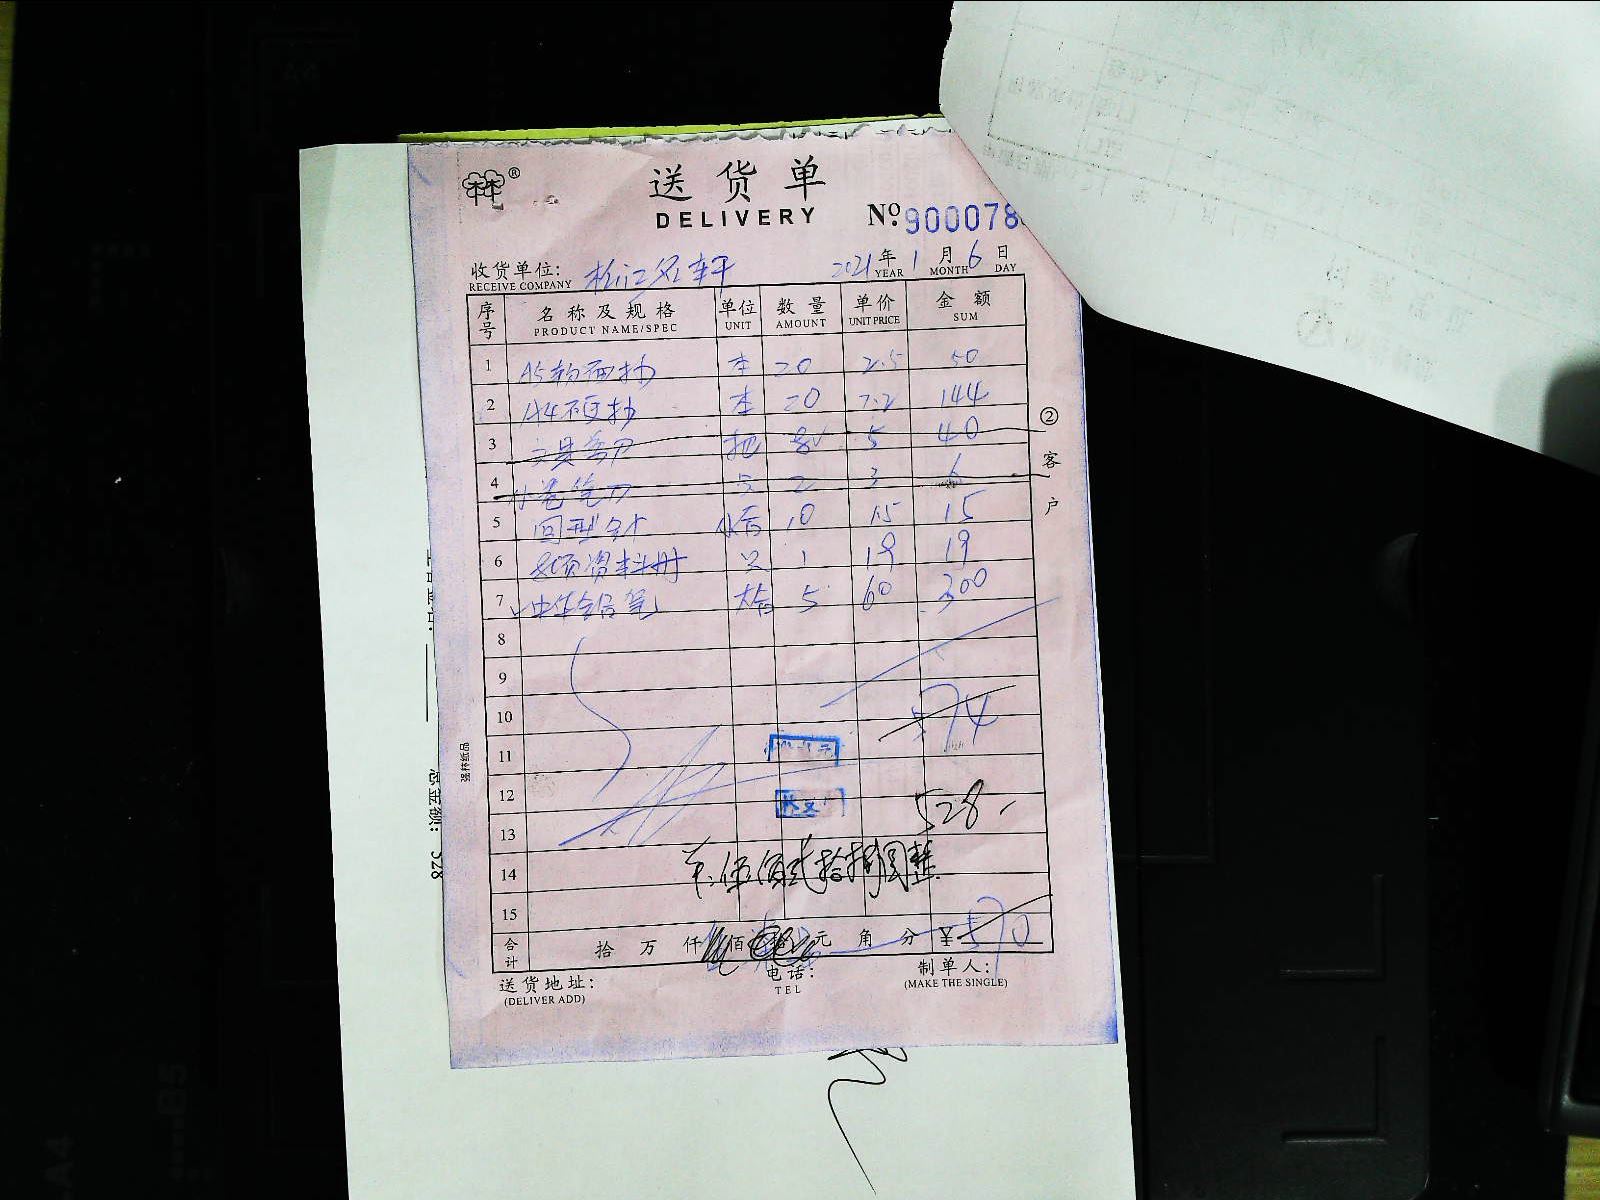 林®
送货单
DELIVERY
Nº 900078
收货单位: 松江名轩 2021年1月6日
RECEIVE COMPANY YEAR MONTH DAY
序号 名称及规格 单位 数量 单价 金额
PRODUCT NAME/SPEC UNIT AMOUNT UNIT PRICE SUM
1 A5软面抄 本 20 2.5 50
2 A4硬抄 本 20 7.2 144
3 把 8 5 40
4 2 3 6
5 回型针 小盒 10 1.5 15
6 资料册 只 1 19 19
7 中华铅笔 大盒 5 60 300
8
9
10 574
11
12
13 528
14 伍佰贰拾捌圆整
15
合计 拾 万 仟 佰 拾 元 角 分 ¥570
②客户
强林纸品
送货地址: 电话: 制单人:
(DELIVER ADD) TEL (MAKE THE SINGLE)
总金额: 528